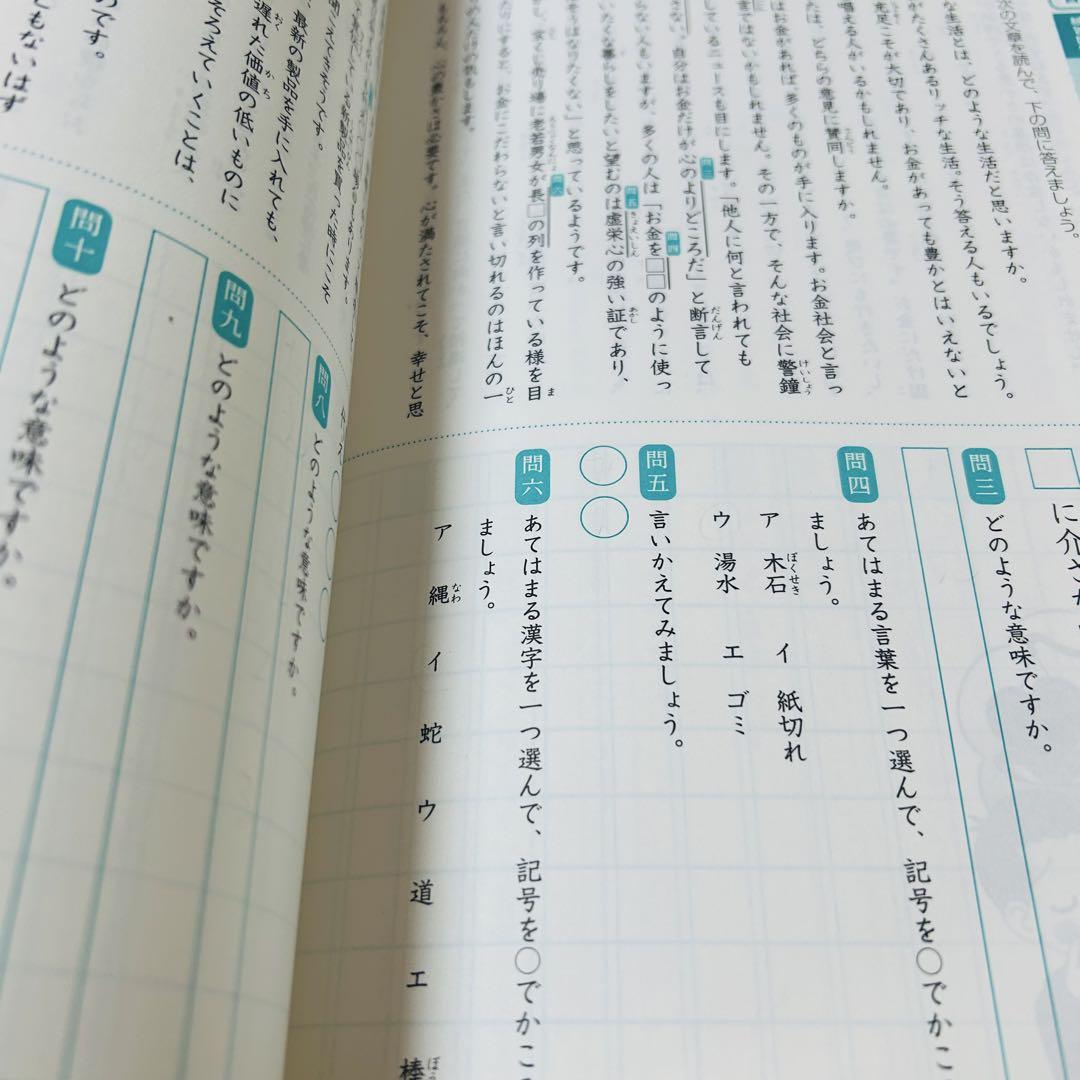 次の文章を読んで、下の問に答えましょう。
な生活とは、どのような生活だと思いますか。
がたくさんあるリッチな生活。そう答える人もいるでしょう。
充足こそが大切であり、お金があっても豊かとはいえないと
唱える人がいるかもしれません。
たは、どちらの意見に賛同しますか。
はお金があれば、多くのものが手に入ります。お金社会と言っ
言ではないかもしれません。その一方で、そんな社会に警鐘
しているニュースも目にします。「他人に何と言われても
さない。自分はお金だけが心のよりどころだ」と断言して
らない人もいますが、多くの人は「お金を□□のように使っ
いたくな暮しをしたいと望むのは虚栄心の強い証であり、
をはなりたくない」と思っているようです。
安く売り場に老若男女が長□の列を作っている様を目
にすると、お金にこだわらないと言い切れるのはほんの一
心の豊かさは必要です。心が満たされてこそ、幸せと思
に介さ
問三 どのような意味ですか。
問四 あてはまる言葉を一つ選んで、記号を○でかこ
ましょう。
ア 木石 イ 紙切れ
ウ 湯水 エ ゴミ
問五 言いかえてみましょう。
問六 あてはまる漢字を一つ選んで、記号を○でかこ
ましょう。
ア 縄 イ 蛇 ウ 道 エ 棒
最新の製品を手に入れても、
遅れた価値の低いものに
そろえていくことは、
のです。
ともないはず
問八 どのような意味ですか。
問九 どのような意味ですか。
問十 どのような意味ですか。